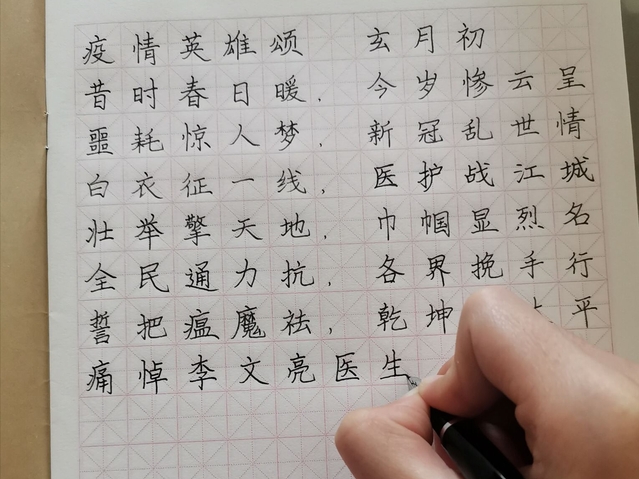 疫情英雄颂 玄月初
昔时春日暖, 今岁惨云呈
噩耗惊人梦, 新冠乱世情
白衣征一线, 医护战江城
壮举擎天地, 巾帼显烈名
全民通力抗, 各界挽手行
誓把瘟魔祛, 乾坤 平
痛悼李文亮医生